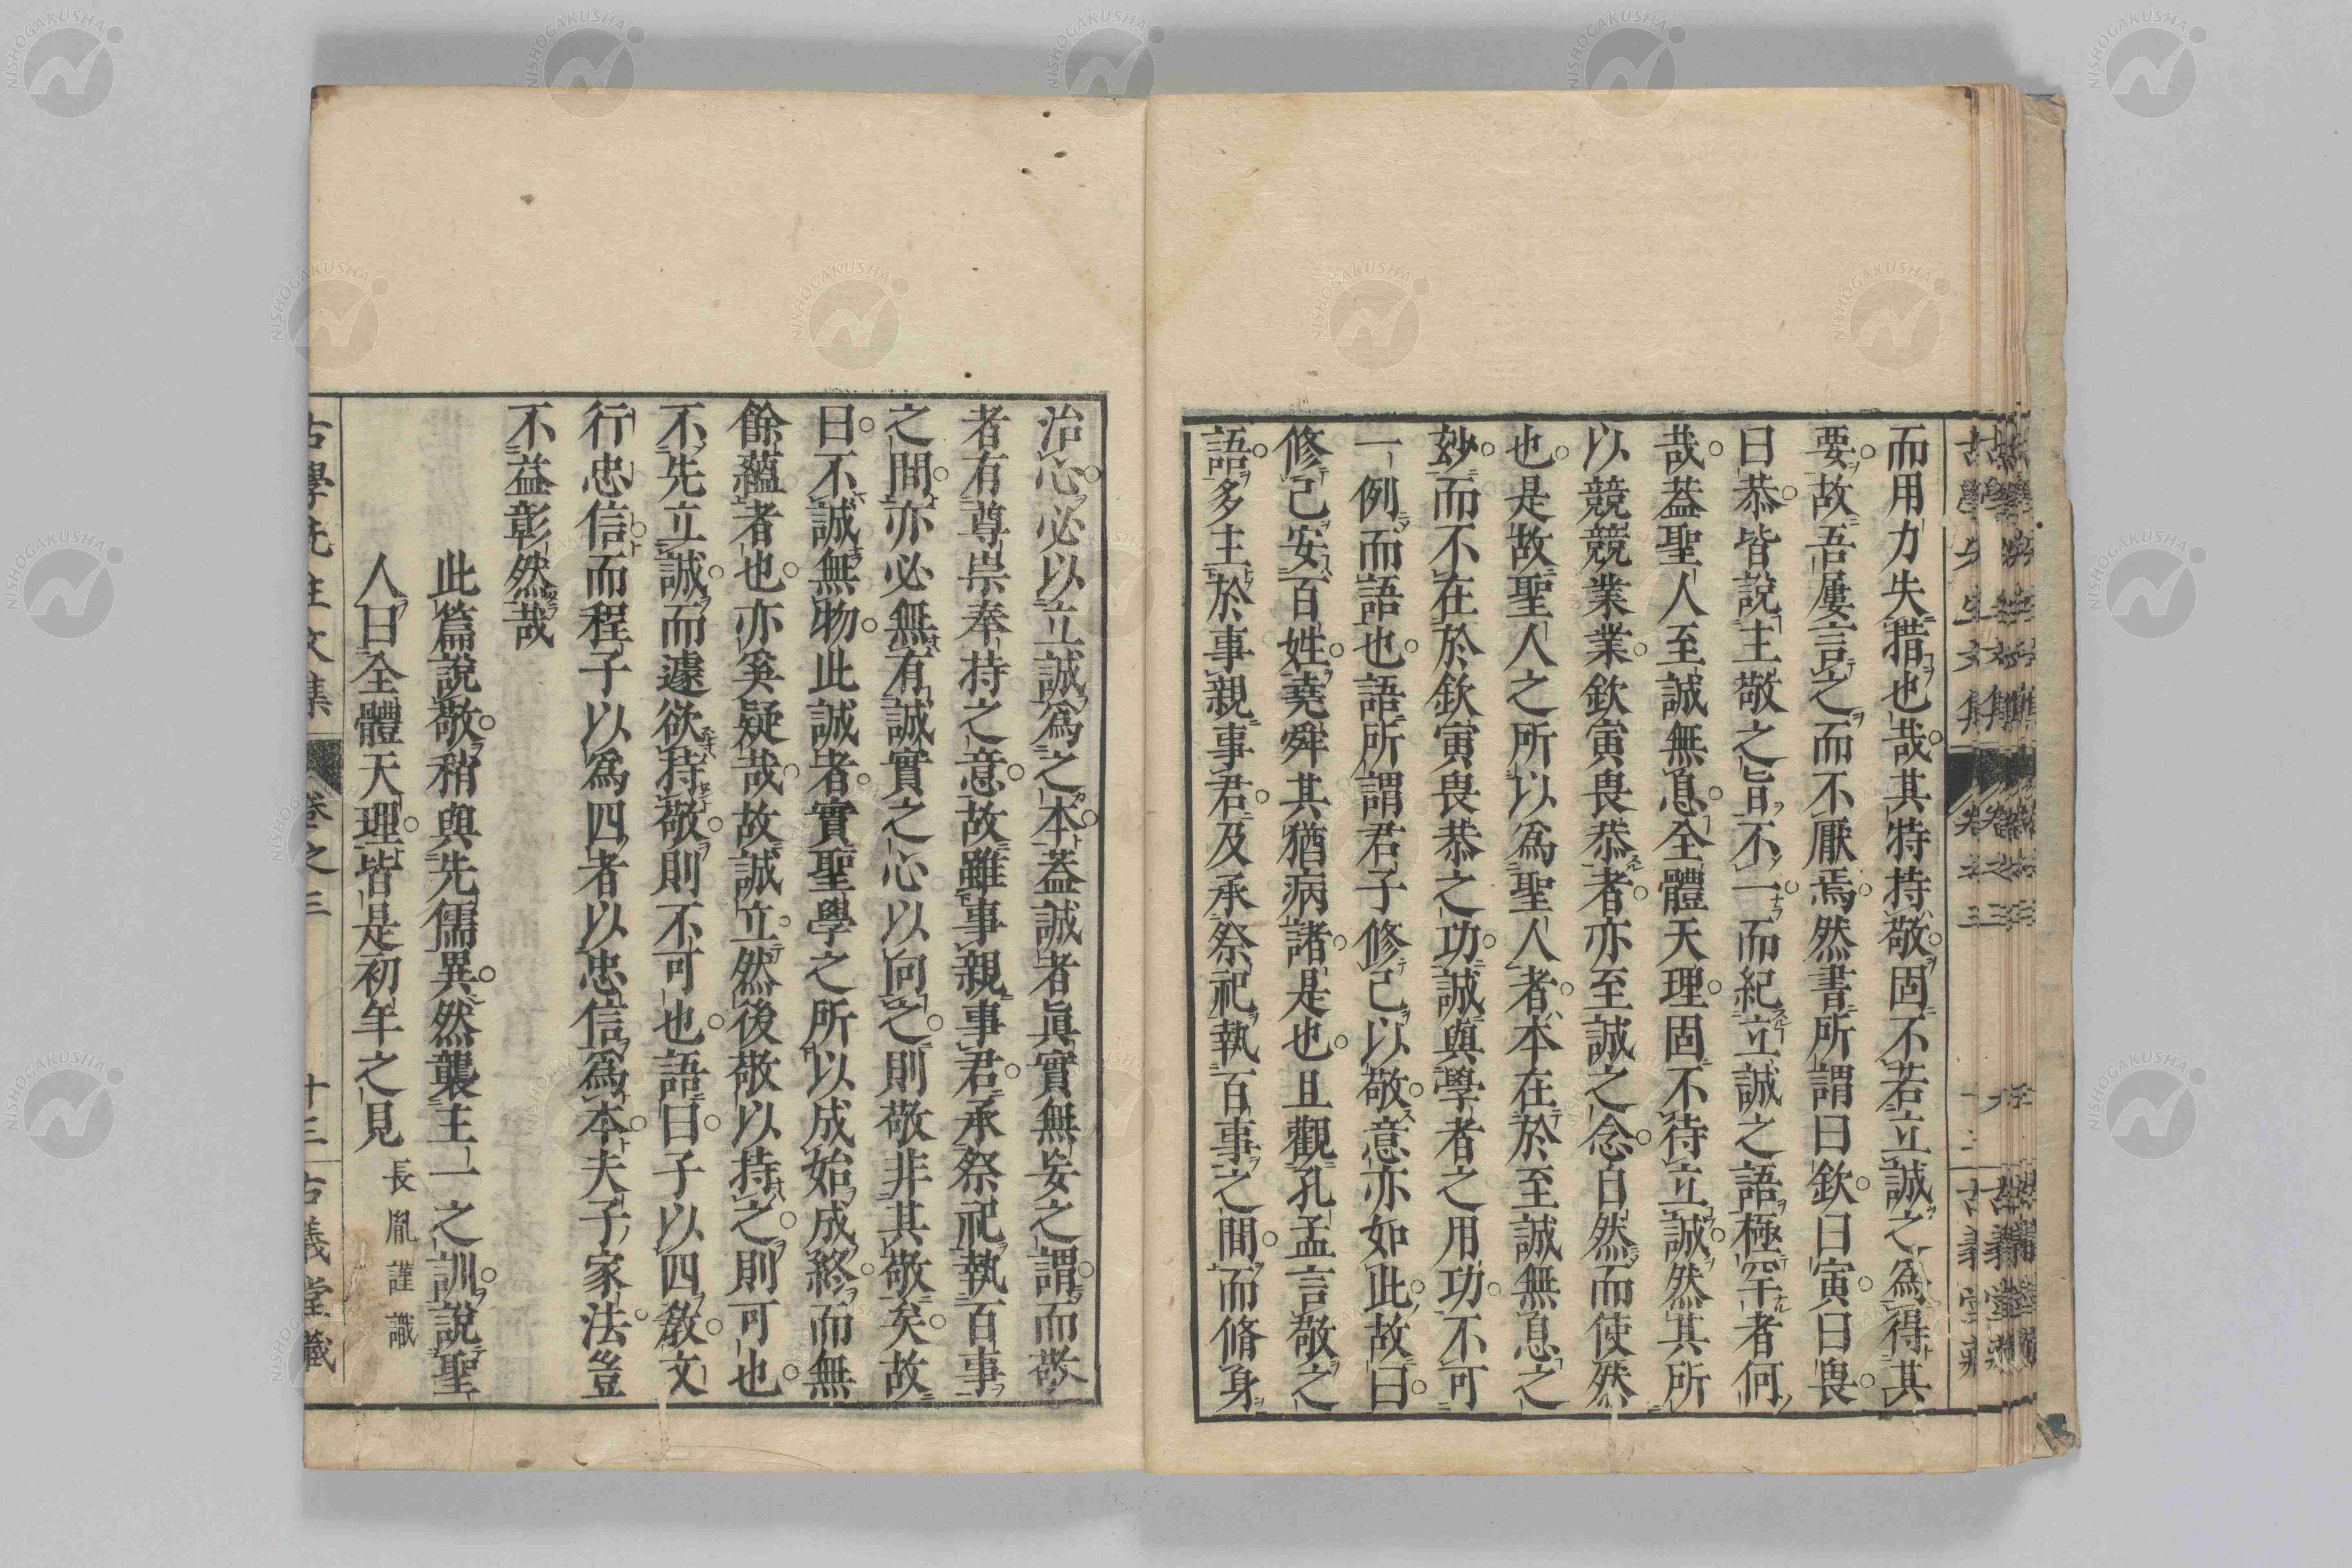 而用力失措也哉其特持敬固不若立誠之爲得其
要故吾屢言之而不厭焉然書所謂曰欽曰寅曰畏
曰恭皆說主敬之旨不一而紀立誠之語極罕者何
哉葢聖人至誠無息全體天理固不待立誠然其所
以競競業業欽寅畏恭者亦至誠之念自然而使然
也是故聖人之所以爲聖人者本在於至誠無息之
妙而不在於欽寅畏恭之功誠與學者之用功不可
一例而語也語所謂君子修己以敬意亦如此故曰
修己安百姓堯舜其猶病諸是也且觀孔孟言敬之
語多主於事親事君及承祭祀執百事之間而脩身
治心必以立誠爲之本葢誠者眞實無妄之謂而敬
者有尊崇奉持之意故雖事親事君承祭祀執百事
之間亦必無有誠實之心以向之則敬非其敬矣故
曰不誠無物此誠者實聖學之所以成始成終而無
餘蘊者也亦奚疑哉故誠立然後敬以持之則可也
不先立誠而遽欲持敬則不可也語曰子以四敎文
行忠信而程子以爲四者以忠信爲本夫子家法豈
不益彰然哉
此篇說敬稍與先儒異然襲主一之訓說聖
人曰全體天理皆是初年之見 長胤謹識
古學先生文集 卷之三 十三 古義堂藏